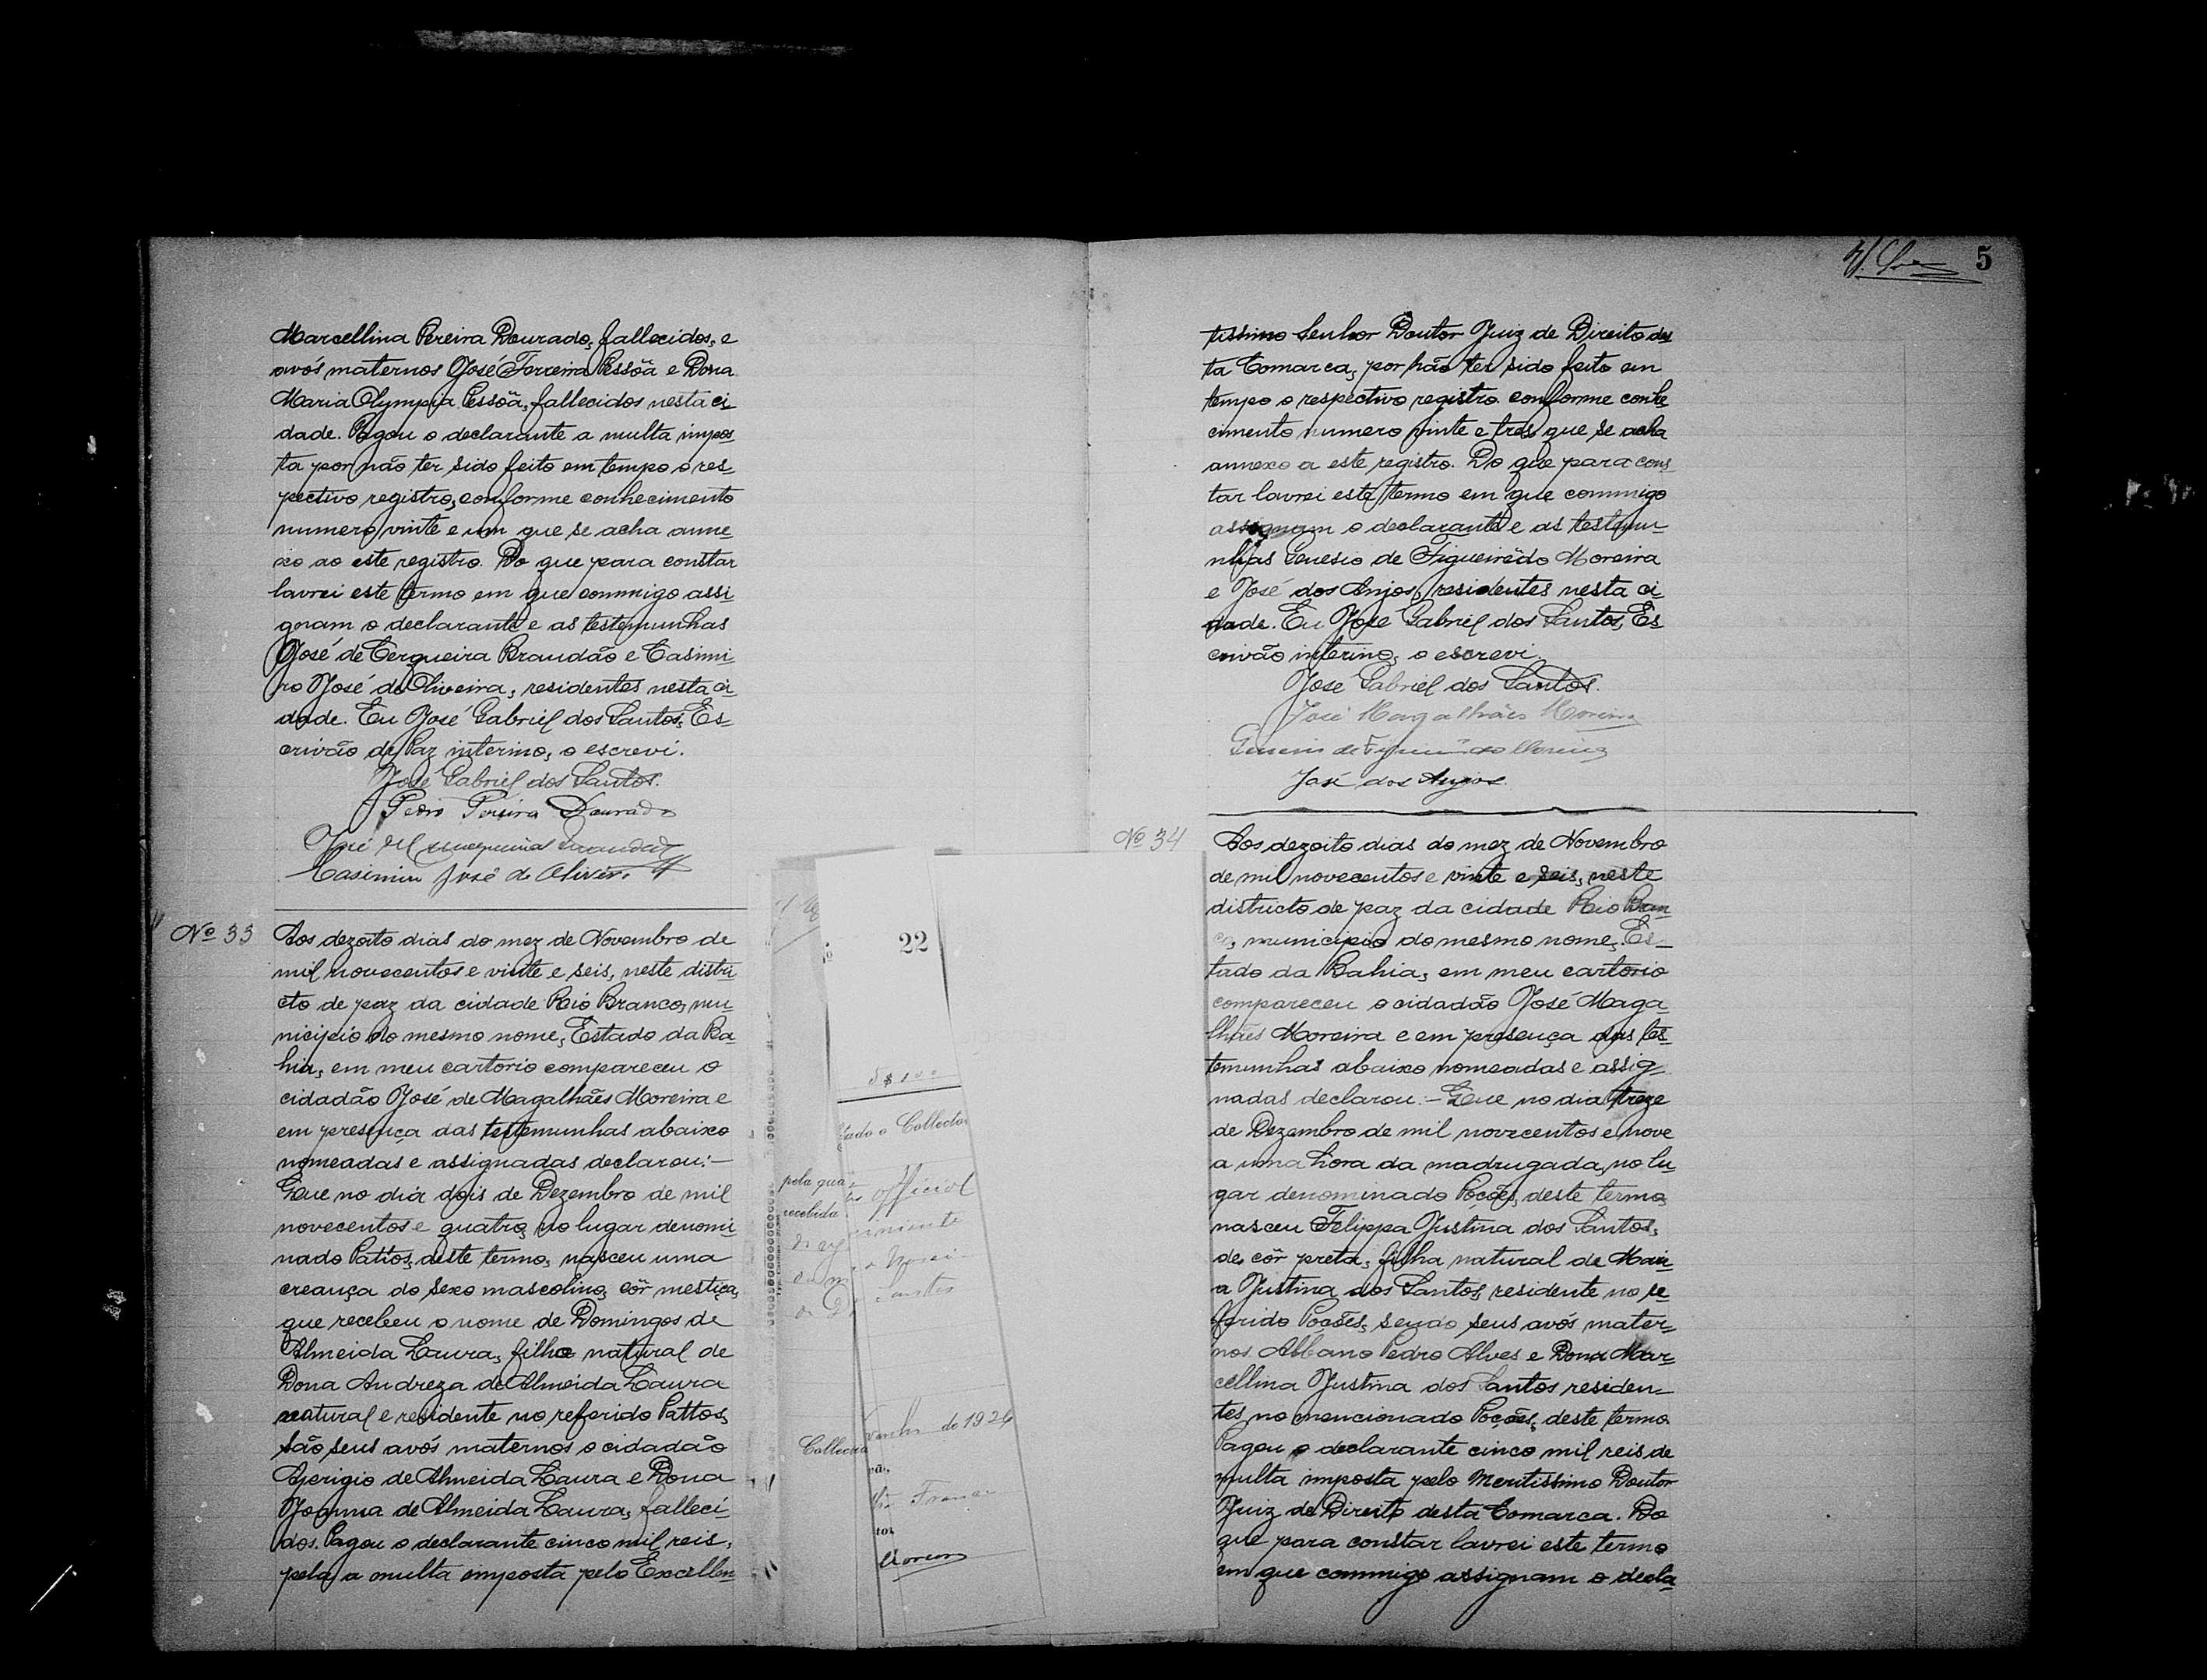 Marcellina Pereira Dourado, fallecidos, e
avós maternos José Ferreira Pessôa e Dona
Maria Olympia Pessôa, fallecidos nesta ci-
dade. Pagou o declarante a multa impos-
ta por não ter sido feito em tempo o res-
pectivo registro, conforme conhecimento
numero vinte e um que se acha anne-
xo ao este registro. Do que para constar
lavrei este termo em que commigo assi-
gnam o declarante e as testemunhas
José de Cerqueira Brandão e Casimi-
ro José de Oliveira, residentes nesta ci-
dade. Eu José Gabriel dos Santos, Es-
crivão de Paz interino, o escrevi.
José Gabriel dos Santos.
Pedro Pereira Dourado
José
Casimiro José de Oliveira
Nº 33
Aos dezoito dias do mez de Novembro de
mil novecentos e vinte e seis, neste distri-
cto de paz da cidade Rio Branco, mu-
nicipio do mesmo nome, Estado da Ba-
hia, em meu cartorio compareceu o
cidadão José de Magalhães Moreira e
em presença das testemunhas abaixo
nomeadas e assignadas declarou:—
Que no dia dois de Dezembro de mil
novecentos e quatro, no lugar denomi-
nado Pattos, deste termo, nasceu uma
creança do sexo mascolino, côr mestiça,
que recebeu o nome de Domingos de
Almeida Laura, filho natural de
Dona Andreza de Almeida Laura
natural e residente no referido Pattos,
são seus avós maternos o cidadão
Aperigio de Almeida Laura e Dona
Joanna de Almeida Laura, falleci-
dos. Pagou o declarante cinco mil reis,
pela a multa imposta pelo Excellen-
22
5$100
tado o Collector
pela qua
official
recebida
Santos
de 1926
Collecto
vão,
tor,
5
tissimo Senhor Doutor Juiz de Direito des-
ta Comarca, por não ter sido feito em
tempo o respectivo registro conforme conhe-
cimento numero vinte e tres que se acha
annexo a este registro. Do que para cons-
tar lavrei este termo em que commigo
assignam o declarante e as testemu-
nhas Genesio de Figueirêdo Moreira
e José dos Anjos, residentes nesta ci-
dade. Eu José Gabriel dos Santos, Es-
crivão interino, o escrevi.
José Gabriel dos Santos.
José Magalhães Moreira
Genesio de Figueirêdo Moreira
José dos Anjos.
Nº 34
Aos dezoito dias do mez de Novembro
de mil novecentos e vinte e seis, neste
districto de paz da cidade Rio Bran-
co, municipio do mesmo nome, Es-
tado da Bahia, em meu cartorio
compareceu o cidadão José Maga-
lhães Moreira e em presença das tes-
temunhas abaixo nomeadas e assig-
nadas declarou:— Que no dia treze
de Dezembro de mil novecentos e nove
a uma hora da madrugada, no lu-
gar denominado Poções, deste termo,
nasceu Felippa Justina dos Santos,
de côr preta, filha natural de Mari-
a Justina dos Santos, residente no re-
ferido Poções, sendo seus avós mater-
nos Albano Pedro Alves e Dona Mar-
cellina Justina dos Santos residen-
tes no mencionado Poções, deste termo.
Pagou o declarante cinco mil reis de
multa imposta pelo Meritissimo Doutor
Juiz de Direito desta Comarca. Do
que para constar lavrei este termo
em que commigo assignam o decla-